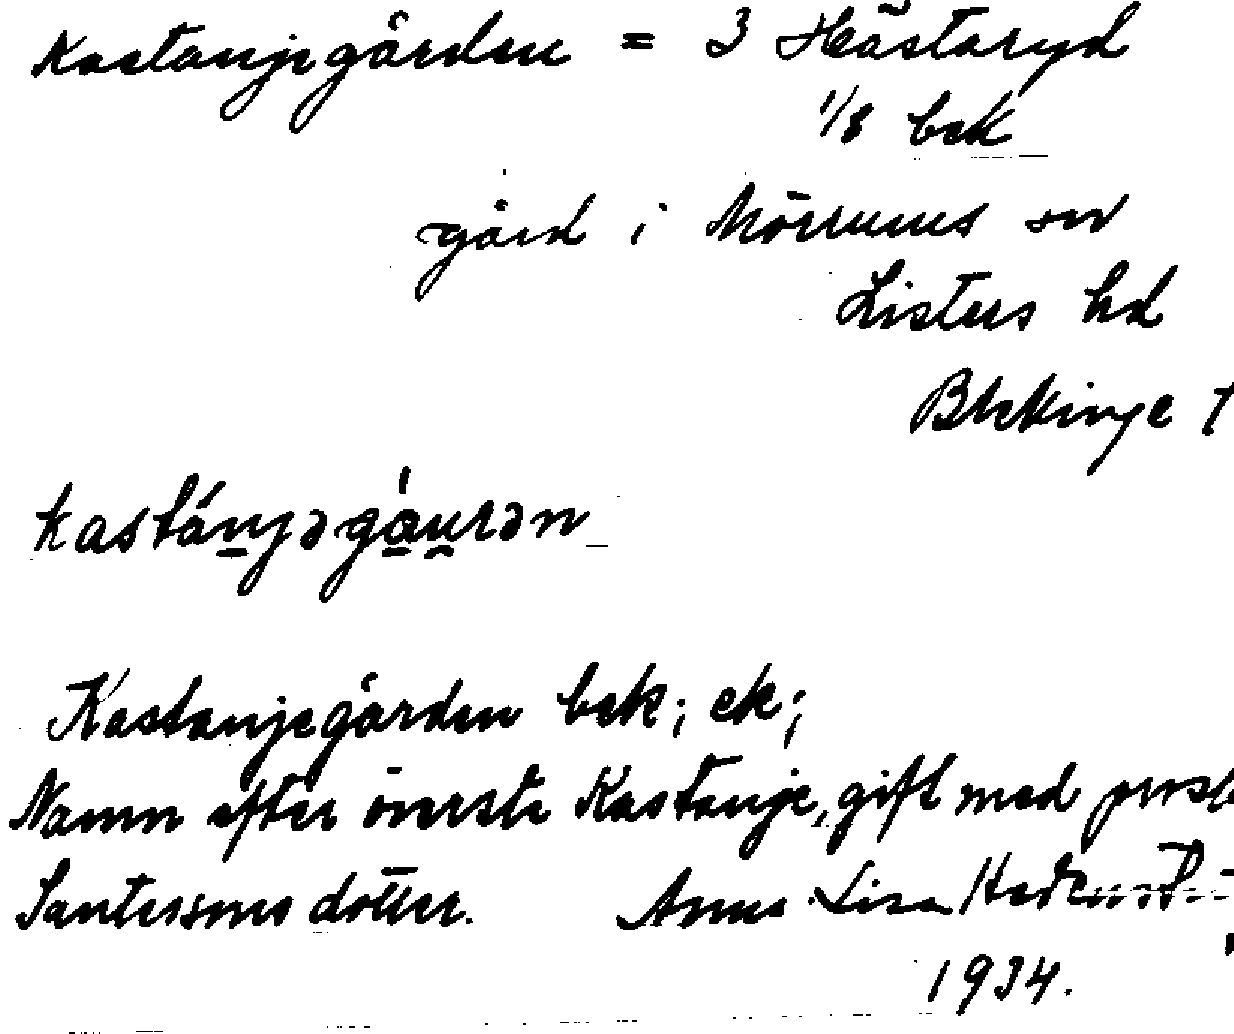 Kastanjegården = 3 Hästaryd
1/8 bek
gård i Mörrums sn
Listers hd
Blekinge
kastánjəgå̀u̯rən
Kastanjegården bek; ek;
Namn efter överste Kastanje, gift med prost
Santessons dotter. Anna Lisa
1934.